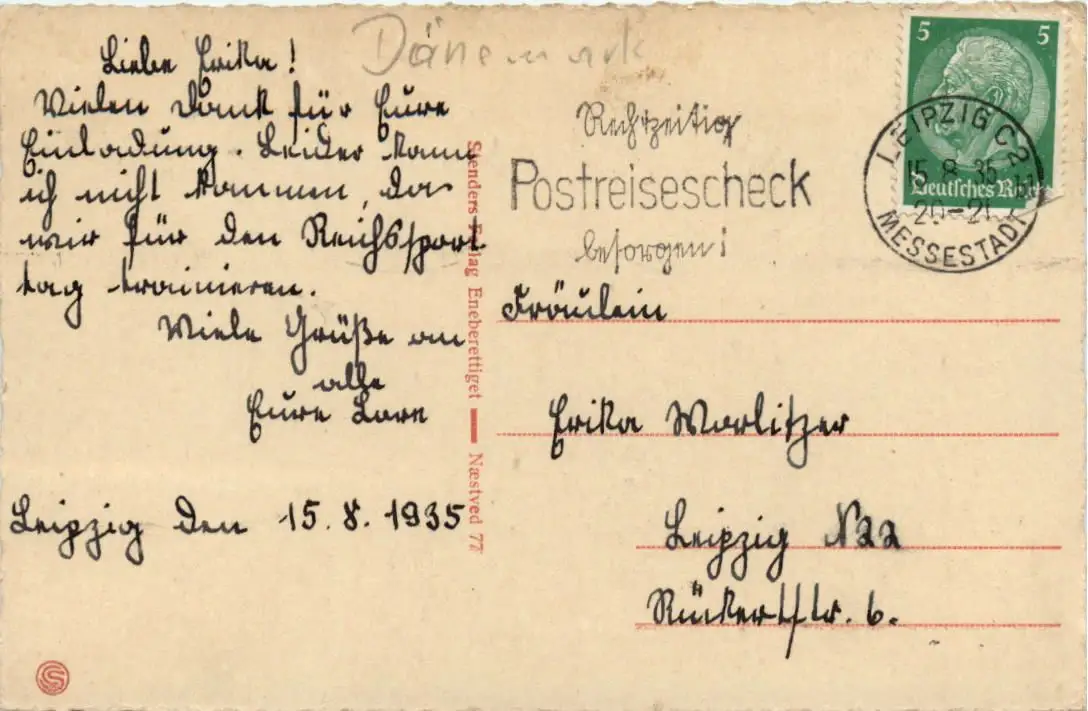 Dänemark
Liebe Erika!
Vielen Dank für Eure
Einladung. Leider kann
ich nicht kommen, da
wir für den Reichssport
tag trainieren.
Viele Grüße an
alle
Eure Lore
Leipzig den 15. 8. 1935
Stenders Forlag Eneberettiget — Næstved 77
Rechtzeitig
Postreisescheck
besorgen!
5 5
Deutsches Reich
LEIPZIG C2
15.8.35
20-21
MESSESTADT
Fräulein
Erika Worlitzer
Leipzig N22
Rückertstr. 6.